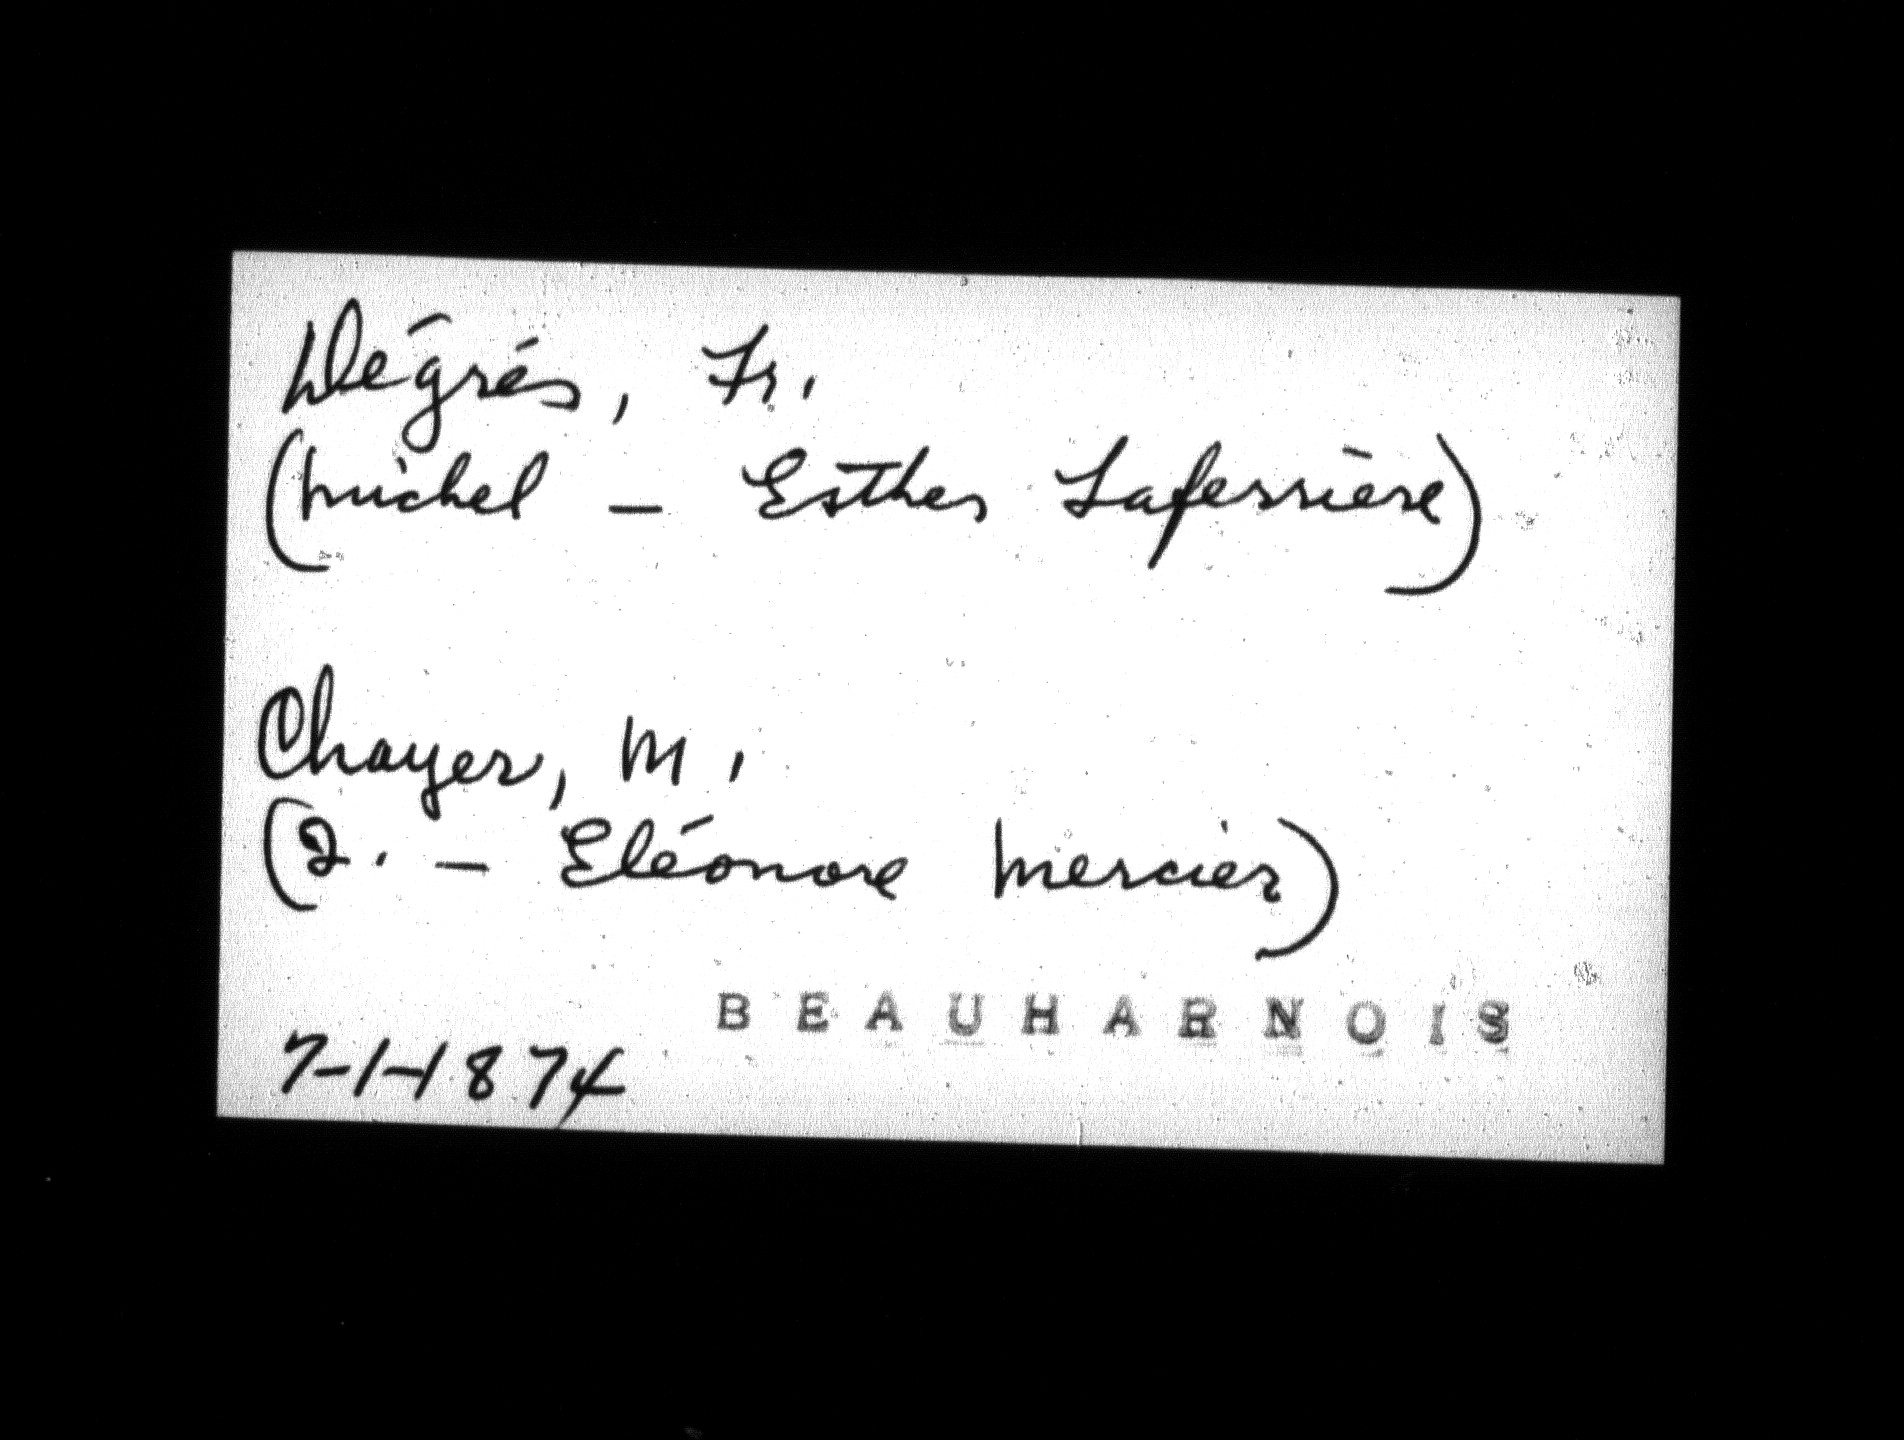 Dégrés, Fr.
(Michel - Esther Laferrière)
Chayer, M.
(I. - Eléonore Mercier)
BEAUHARNOIS
7-1-1874